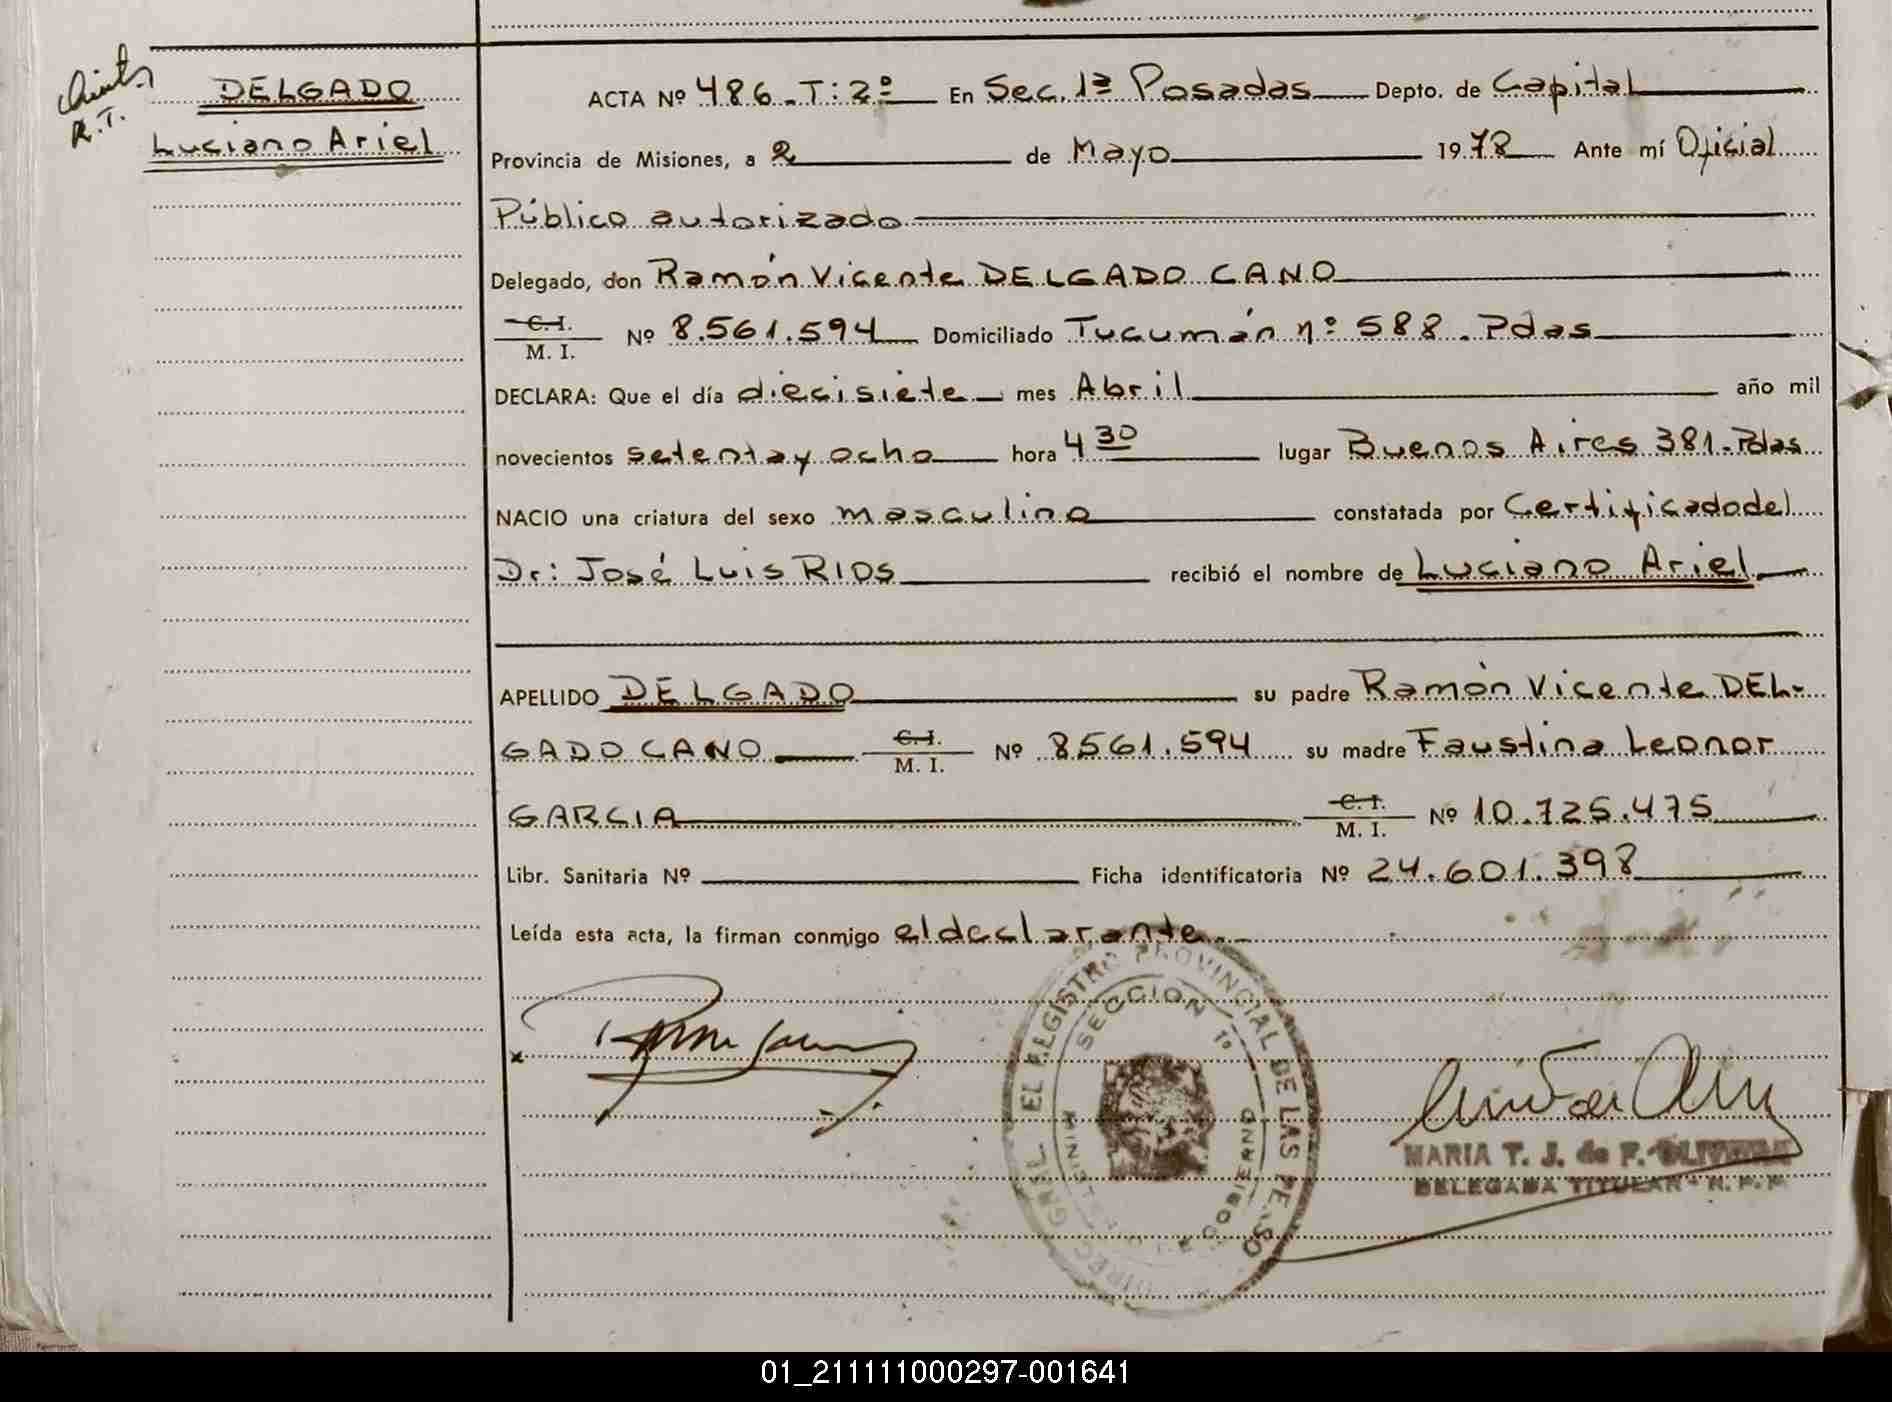 DELGADO
Luciano Ariel
R.T.
ACTA Nº 486 - T: 2º En Sec. 1ª Posadas Depto. de Capital
Provincia de Misiones, a 2 de Mayo 1978 Ante mí Oficial
Público autorizado
Delegado, don Ramón Vicente DELGADO CANO
C. I.
M. I. Nº 8.561.594 Domiciliado Tucumán nº 588 - Pdas
DECLARA: Que el día diecisiete mes Abril año mil
novecientos setenta y ocho hora 4 30 lugar Buenos Aires 381 - Pdas
NACIO una criatura del sexo masculino constatada por Certificado del
Dr: José Luis RIOS recibió el nombre de Luciano Ariel
APELLIDO DELGADO su padre Ramón Vicente DEL-
GADO CANO C. I. M. I. Nº 8561.594 su madre Faustina Leonor
GARCIA C. I. M. I. Nº 10.725.475
Libr. Sanitaria Nº Ficha identificatoria Nº 24.601.398
Leída esta acta, la firman conmigo el declarante.-
DIREC GRAL. EL REGISTRO PROVINCIAL DE LAS PERSO
SECCION 1º
MINISTERIO DE GOBIERNO
MARIA T. J. de F. OLIVEIRA
DELEGADA TITULAR - R. P. P.
01_211111000297-001641